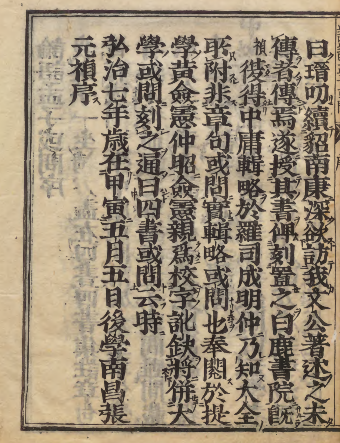 曰瑨叨續貂南康深欲訪我文公著述之未
傳者傳焉遂授其書俾刻置之白鹿書院既
禎彼得中庸輯略於羅司成明仲乃知大全
所附非章句或問實輯略或問也奉閱於提
學黃僉憲仲昭僉憲親爲校字訛缺將併大
學或問刻之通曰四書或問云時
弘治七年歲在甲寅五月五日後學南昌張
元禎序